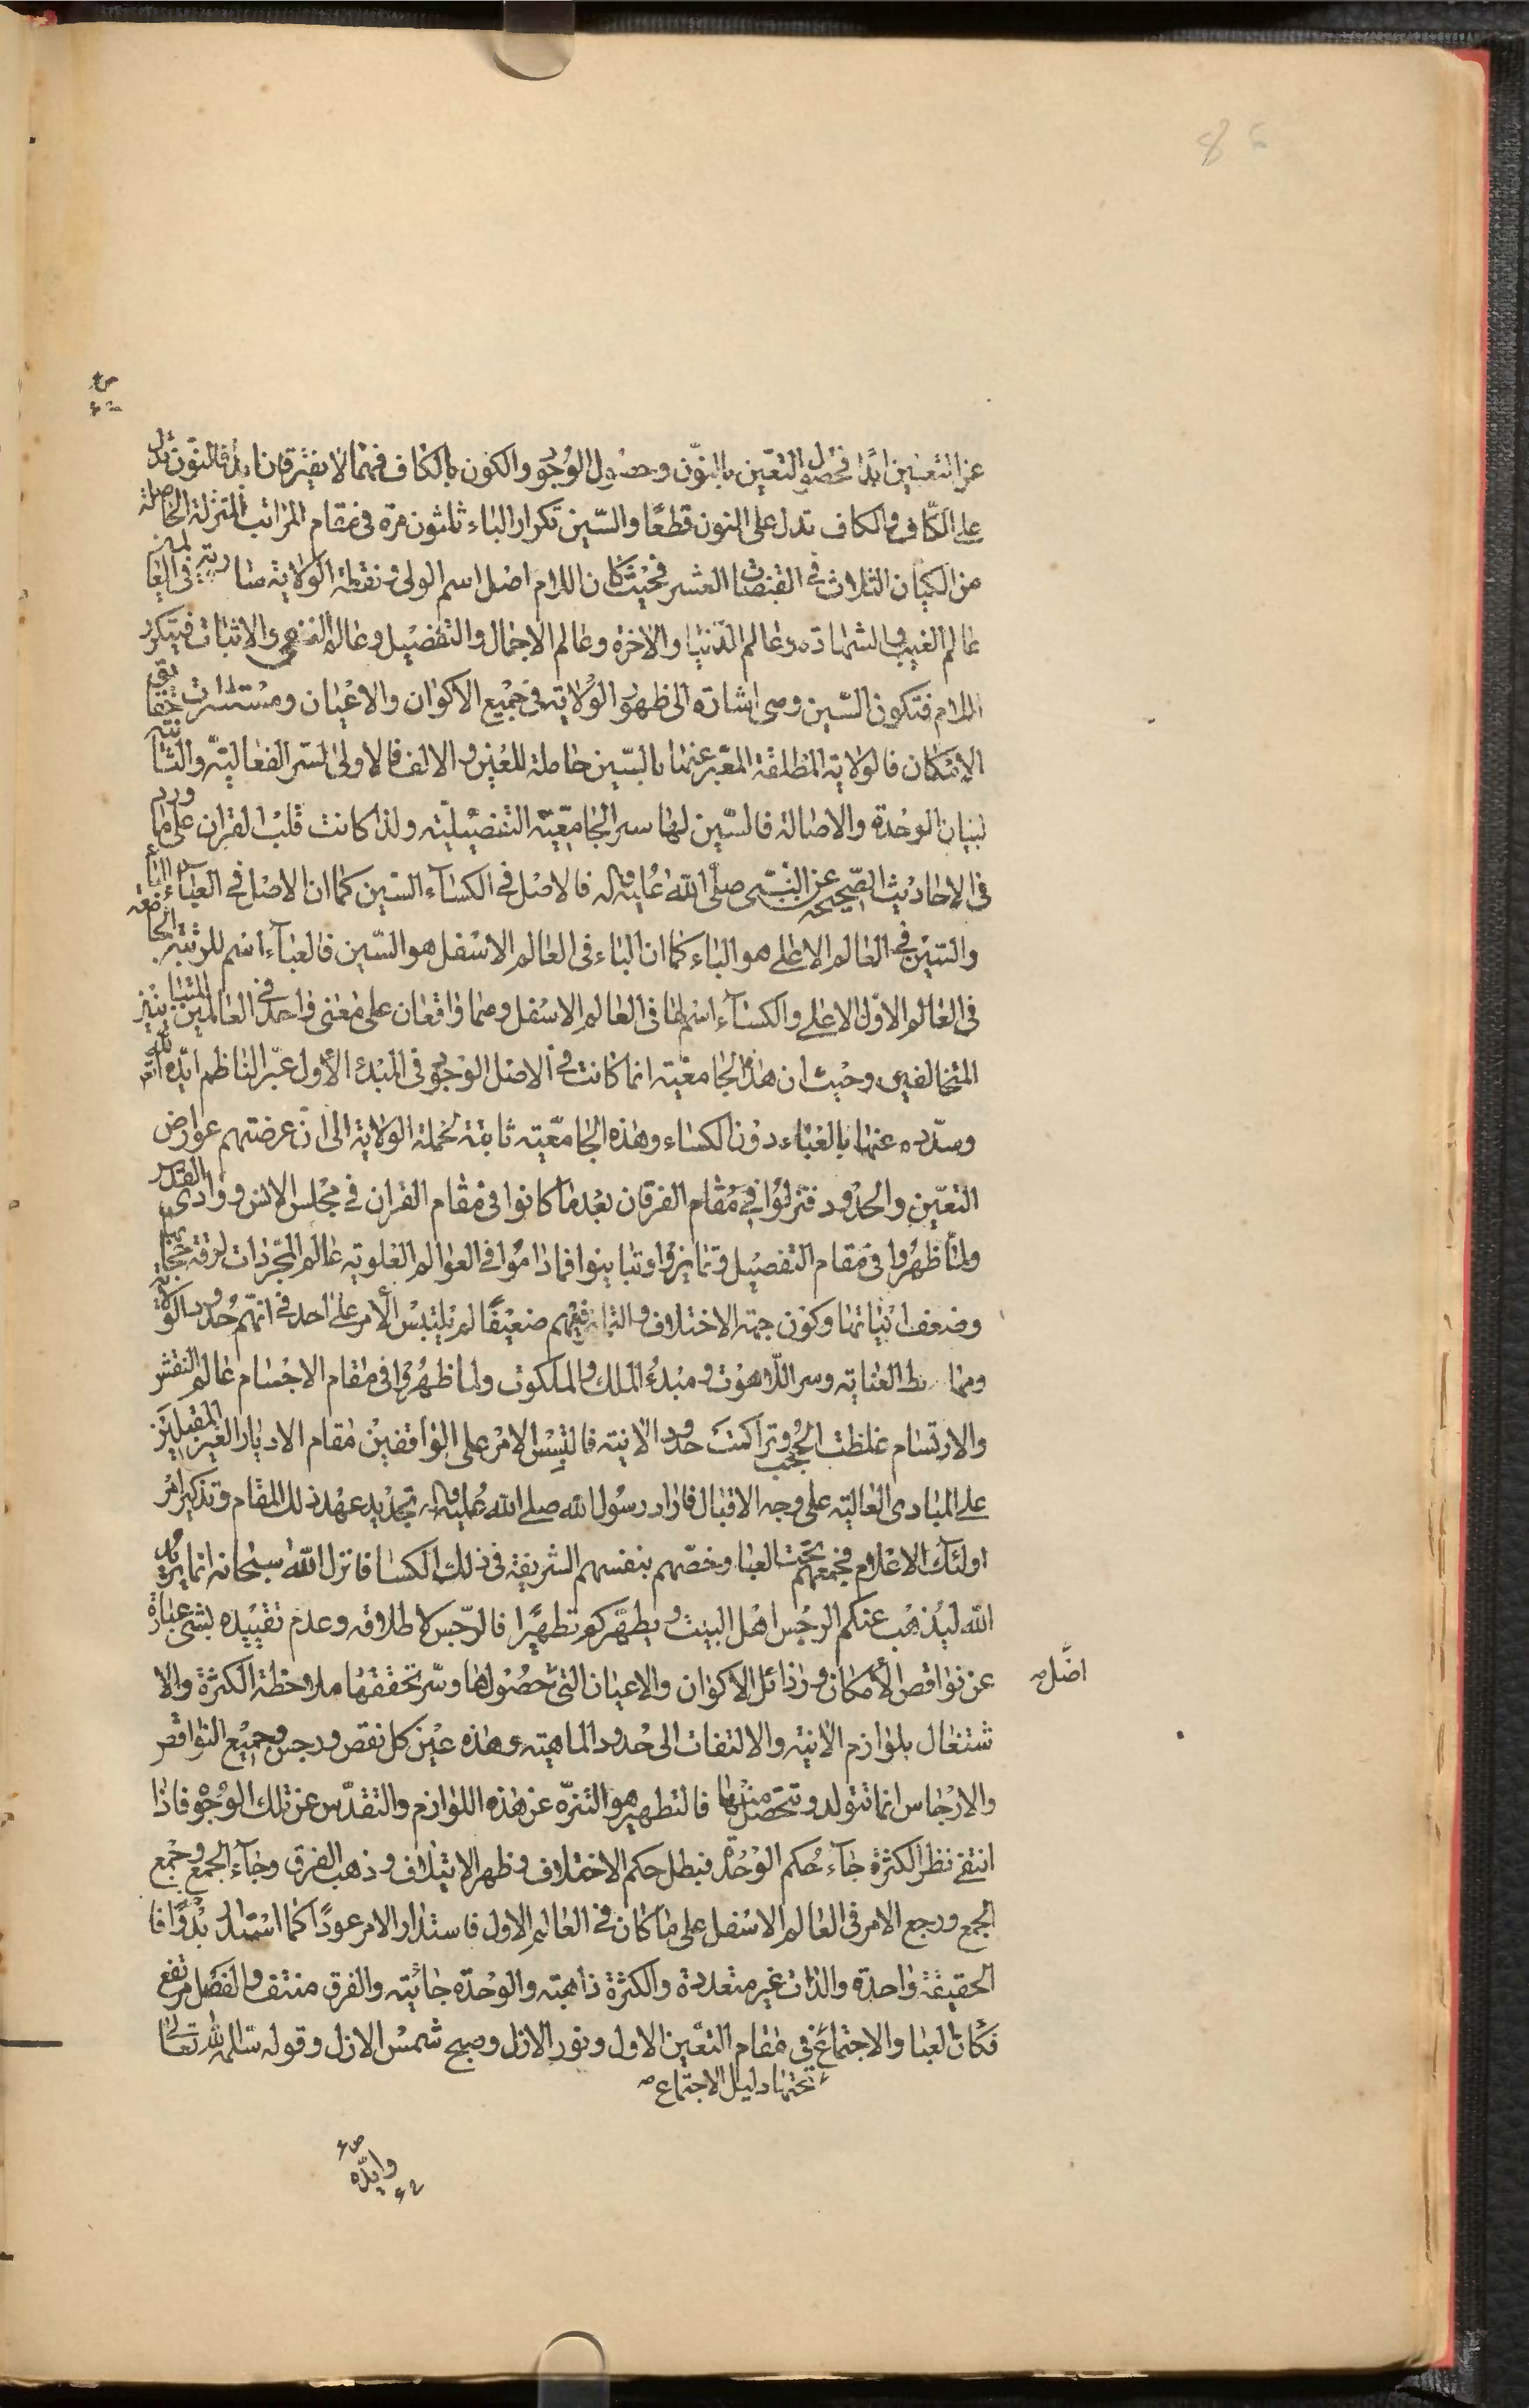 86
عن التعين ابدًا فحصول التعين بالنون وحصول الوجود والكون بالكاف فهما لا يفترقان ابدًا فالنون تدل
على الكاف والكاف تدل على النون قطعًا والسّين تكرار الباء ثلثون مرة فى مقام المراتب المتنزلة الحاصلة
من الكيان الثلاث فى القبضات العشر فحيث كان اللام اصل اسم الولى ونقطة الولاية سارية فى العالمين
عالم الغيب والشهادة وعالم الدنيا والاخرة وعالم الاجمال والتفصيل وعالم النفى والاثبات فيتكرر
اللام فتكون السّين وهى اشارة الى ظهور الولاية فى جميع الاكوان والاعيان ومستسرات حقايق
الامكان فالولاية المطلقة المعبر عنها بالسّين حاملة للغين والالف فالاولى لسر الفعالية والثانية
لبيان الوحدة والاصالة فالسّين لها سر الجامعية التفصيلية ولذا كانت قلب القران على ما ورد
فى الاحاديث الصحيحة عن النبى صلى الله عليه واله فالاصل فى الكساء السّين كما ان الاصل فى العباء الباء
والسّين فى العالم الاعلى هو الباء كما ان الباء فى العالم الاسفل هو السّين فالعباء اسم للرتبة الجامعة
فى العالم الاول الاعلى والكساء اسم لها فى العالم الاسفل وهما واقعان على معنى واحد فى العالمين المتباينين
المتخالفين وحيث ان هذه الجامعية انما كانت فى الاصل الوجود فى المبدء الأول عبّر الناظم ايّده الله
وسدّده عنها بالعباء دون الكساء وهذه الجامعية ثابتة لحملة الولاية الى ان عرضتهم عوارض
التعين والحدود فتنزلوا فى مقام الفرقان بعد ما كانوا فى مقام القران فى مجلس الانس ووادى القدس
ولما ظهروا فى مقام التفصيل وتمايزوا وتباينوا فما داموا فى العوالم العلوية عالم المجردات لرقة حجابها
وضعف انياتها وكون جهة الاختلاف والتمايز فيهم ضعيفًا لم يلتبس الأمر على احد فى انهم حدود الولاية
ومهابط العناية وسر اللاهوت ومبدء الملك والملكوت ولما ظهروا فى مقام الاجسام عالم النقش
والارتسام غلظت الحجب وتراكمت حدود الانية فالتبس الامر على الواقفين مقام الادبار الغير المقبلين
على المبادى العالية على وجه الاقبال فاراد رسول الله صلى الله عليه واله تجديد عهد ذلك المقام وتذكير امر
اولئك الاعلام فجمعهم تحت العبا وخصّهم بنفسهم الشريفة فى ذلك الكسا فانزل الله سبحانه انما يريد
الله ليذهب عنكم الرجس اهل البيت ويطهّركم تطهيرًا فالرّجس لاطلاقه وعدم تقييده بشئ عبارة
عن نواقص الأمكان ورذائل الاكوان والاعيان التى حصولها وسر تحققها ملاحظة الكثرة والا
اصل
شتغال بلوازم الانية والالتفات الى حدود الماهية وهذه عين كل نقص ورجس وجميع النواقص
والارجاس انما تتولد وتتحصل منها فالتطهير هو التنزّه عن هذه اللوازم والتقدّس عن تلك الوجوه فاذا
انتفى نظر الكثرة جاء حكم الوحدة فبطل حكم الاختلاف وظهر الايتلاف وذهب الفرق وجاء الجمع وجمع
الجمع ورجع الامر فى العالم الاسفل على ما كان فى العالم الاول فاستدار الامر عودًا كما استدار بدوًا فا
لحقيقة واحدة والذات غير متعددة والكثرة ذاهبة والوحدة جائية والفرق منتف والفصل مرتفع
فكان العبا والاجتماع فى مقام التعين الاول ونور الازل وصبح شمس الازل وقوله سلمه الله تعالى
تحتها دليل الاجتماع
وايدّه